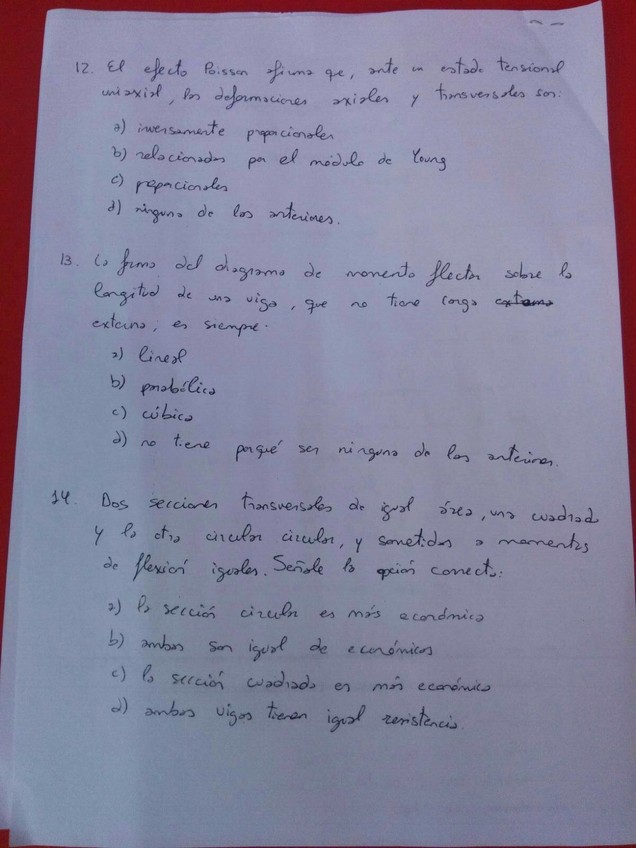 12. El efecto Poisson afirma que, ante un estado tensional
uniaxial, las deformaciones axiales y transversales son:
a) inversamente proporcionales
b) relacionadas por el módulo de Young
c) proporcionales
d) ninguna de las anteriores.
13. La forma del diagrama de momento flector sobre la
longitud de una viga, que no tiene carga externa
externa, es siempre:
a) lineal
b) parabólica
c) cúbica
d) no tiene porqué ser ninguna de las anteriores.
14. Dos secciones transversales de igual área, una cuadrada
y la otra circular circular, y sometidas a momentos
de flexión iguales. Señale la opción correcta:
a) la sección circular es más económica
b) ambas son igual de económicas
c) la sección cuadrada es más económica
d) ambas vigas tienen igual resistencia.